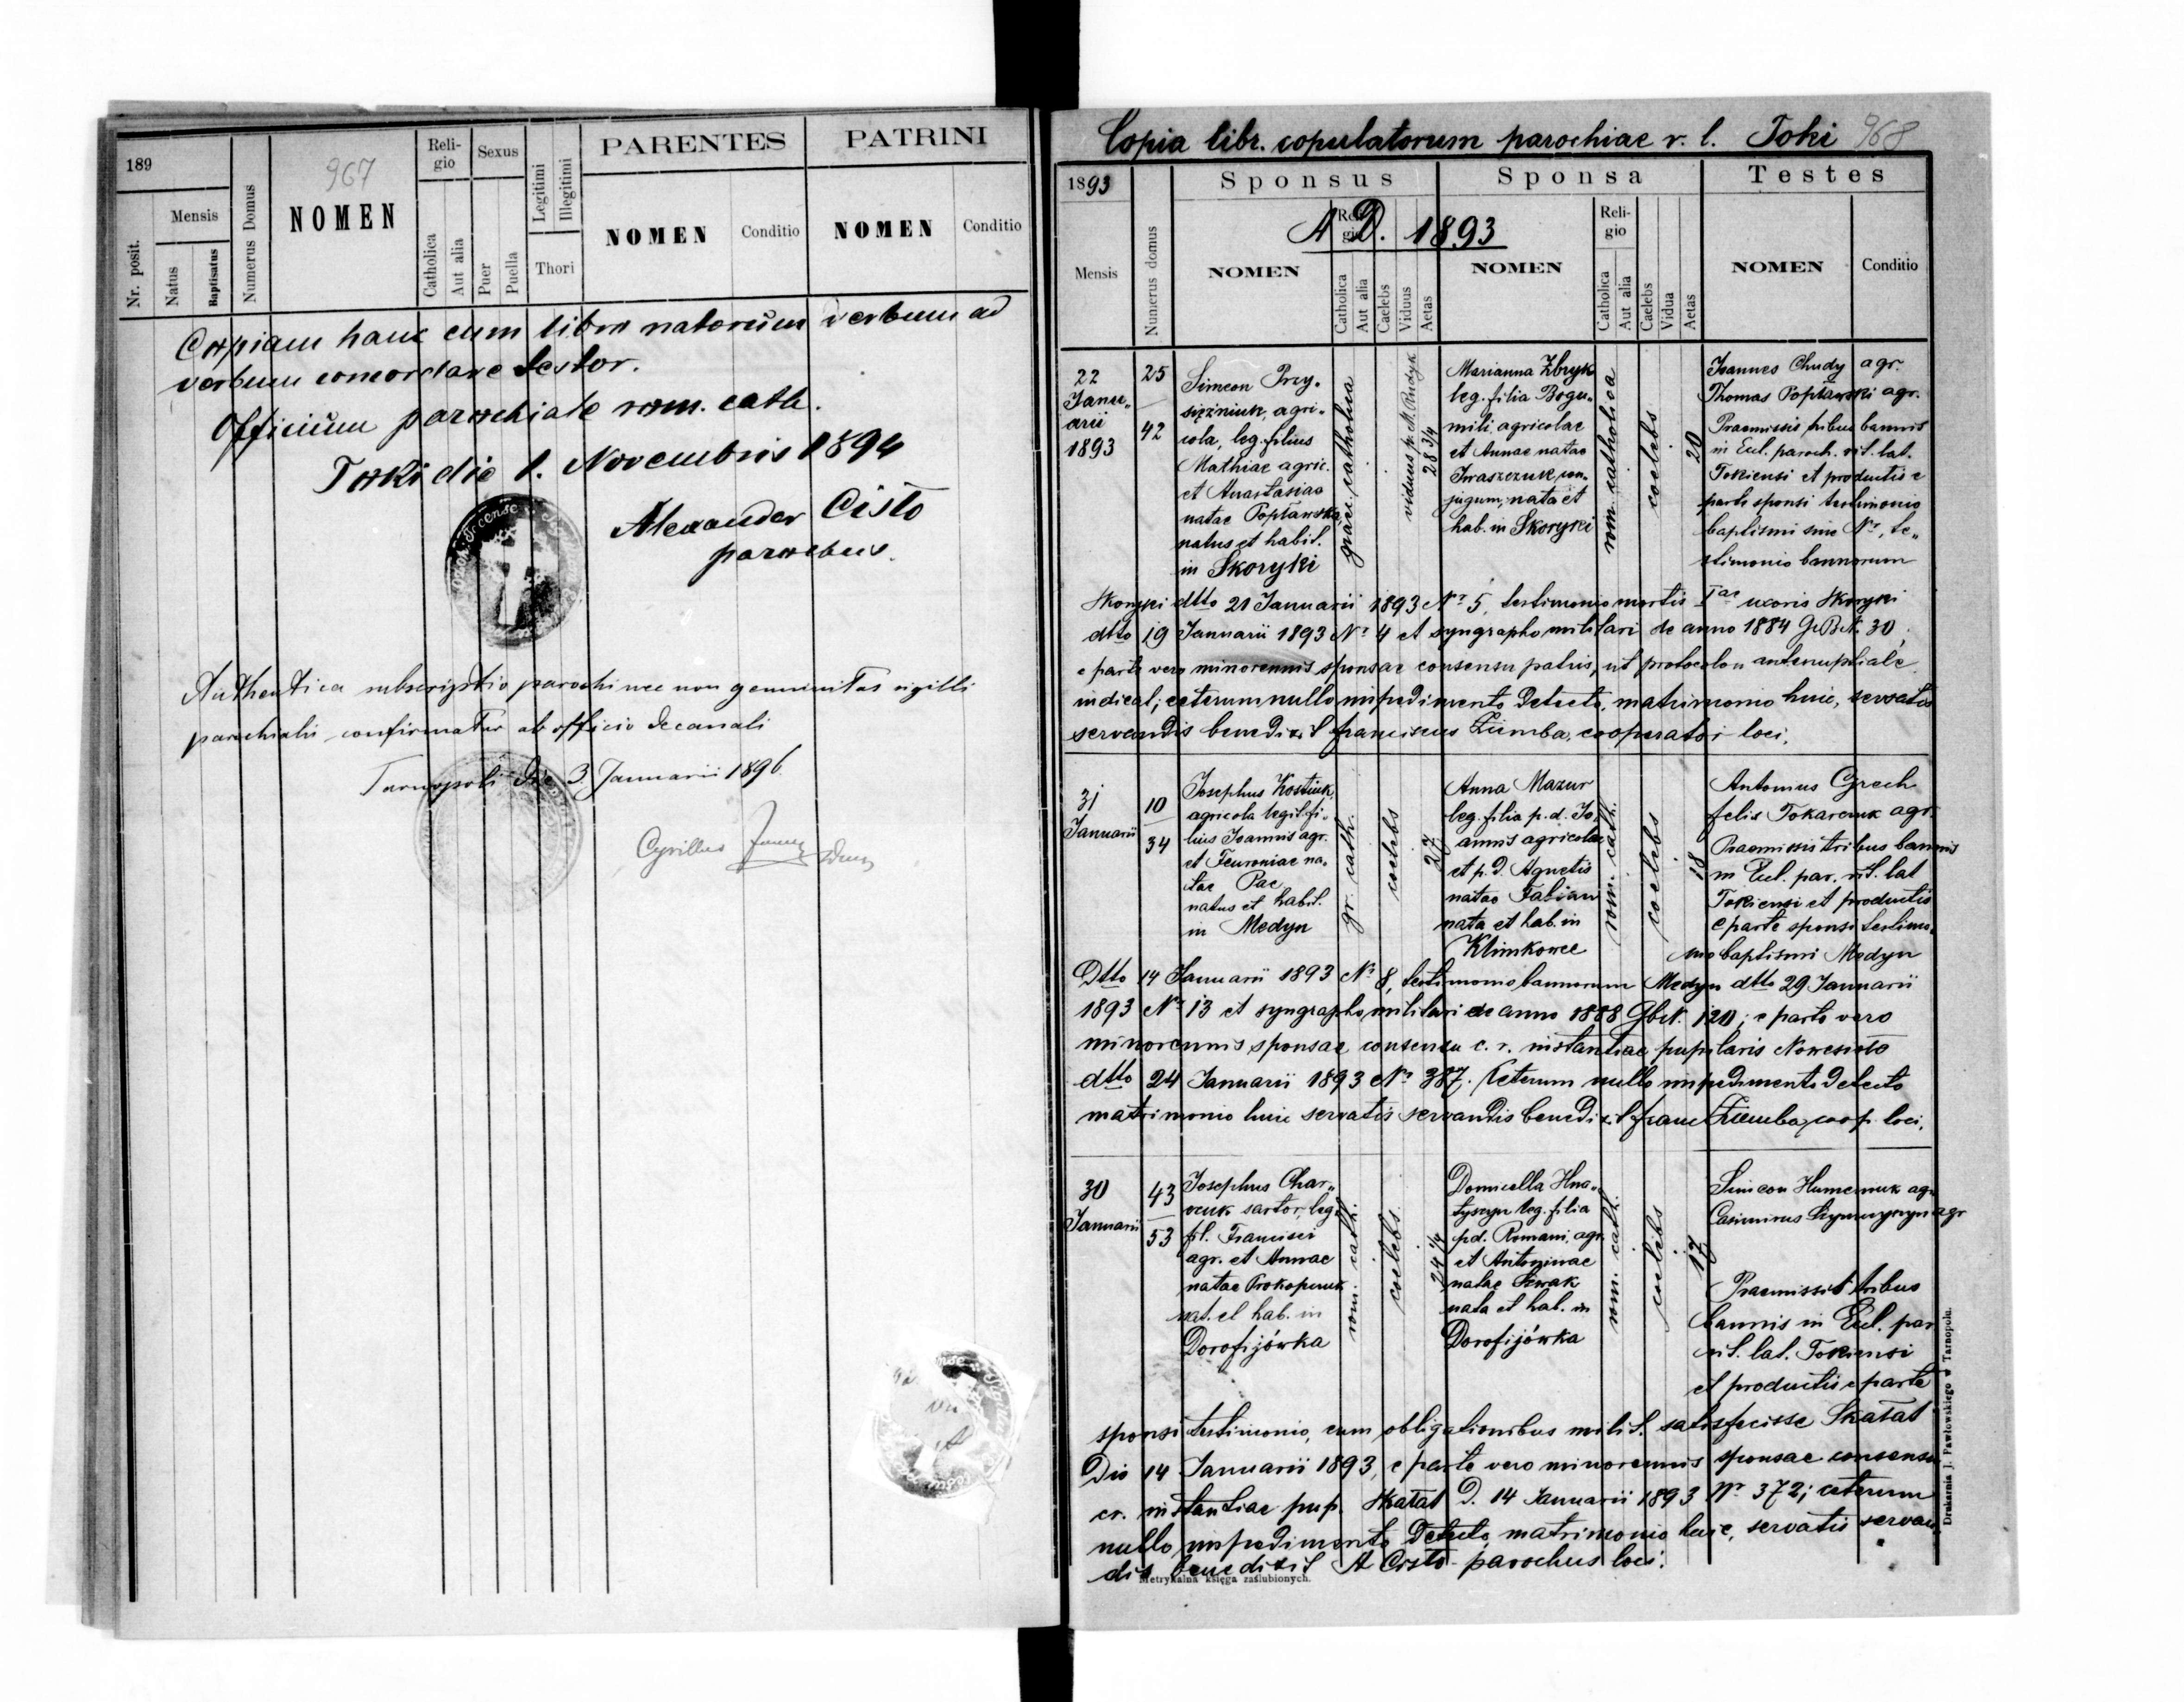 189
967
Nr. posit.
Mensis
Natus
Baptisatus
Numerus Domus
NOMEN
Reli-
gio
Catholica
Aut alia
Sexus
Puer
Puella
Legitimi
Illegitimi
Thori
PARENTES
NOMEN
Conditio
PATRINI
NOMEN
Conditio
Copiam hanc cum libro natorum verbum ad
verbum concordare testor.
Officium parochiale rom. cath.
Toki die 1. Novembris 1894
Alexander Cisło
parochus.
Authentica subscriptio parochi nec non genuinitas sigilli
parochialis confirmatur ab officio decanali
Tarnopoli die 3. Januarii 1896
Cyrillus
Copia libr. copulatorum parochiae r. l. Toki 968
1893
Mensis
Numerus domus
Sponsus
NOMEN
Reli-
gio
Catholica
Aut alia
Caelebs
Viduus
Aetas
A D. 1893
Sponsa
NOMEN
Reli-
gio
Catholica
Aut alia
Caelebs
Vidua
Aetas
Testes
NOMEN
Conditio
22
Janu„
arii
1893
25
42
Simeon Przy„
siężniuk, agri„
cola, leg. filius
Mathiae agric.
et Anastasiae
natae Popławska
natus et habit.
in Skoryki
graec. catholica
viduus p. M. Rudyk
28 3/4
Marianna Zbryk
leg. filia Bogu„
mili agricolae
et Annae natae
Iwaszczuk con„
jugum, nata et
hab. in Skoryki
rom. catholica
coelebs
20
Joannes Chudy agr.
Thomas Popławski agr.
Praemissis tribus bannis
in Eccl. paroch. rit. lat.
Tokiensi et productis e
parte sponsi testimonio
baptismi sine No, te„
stimonio bannorum
Skoryki dtto 21 Januarii 1893 No 5, testimonio mortis Iae uxoris Skoryki
dtto 19 Januarii 1893 No 4 et syngrapho militari de anno 1884 GBN. 30;
e parte vero minorennis sponsae consensu patris, ut protocolon antenuptiale
indicat; ceterum nullo impedimento detecto, matrimonio huic, servatis
servandis benedixit Franciscus Ziemba, cooperator loci.
31
Januarii
10
34
Josephus Kostiuk,
agricola legit. fi„
lius Joannis agr.
et Feuroniae na„
tae Pac
natus et habit.
in Medyn
gr. cath.
coelebs
27
Anna Mazur
leg. filia p. d. Jo„
annis agricolae
et p. d. Agnetis
natae Fabian
nata et hab. in
Klimkowce
rom. cath.
coelebs
18
Antonius Grech
Felix Tokarczuk agr.
Praemissis tribus bannis
in Eccl. par. rit. lat
Tokiensi et productis
e parte sponsi testimo„
nio baptismi Medyn
Dtto 14 Januarii 1893 No 8, testimonio bannorum Medyn dtto 29 Januarii
1893 No 13 et syngrapho militari de anno 1888 GbN. 120; e parte vero
minorennis sponsae consensu c. r. instantiae pupilaris Nowesioło
dtto 24 Januarii 1893 No 387. Ceterum nullo impedimento detecto
matrimonio huic servatis servandis benedixit Franc Ziemba, coop. loci.
30
Januarii
43
53
Josephus Char„
czuk sartor, leg.
fil. Francisci
agr. et Annae
natae Prokopczuk
nat. et hab. in
Dorofijówka
rom. cath.
coelebs
24 1/4
Domicella Hna„
tyszyn leg. filia
pd. Romani, agr.
et Antoninae
natae Szwak
nata et hab. in
Dorofijówka
rom. cath.
coelebs
17
Simeon Humeniuk agr
Casimirus agr
Praemissis tribus
bannis in Eccl. par
rit. lat. Tokiensi
et productis e parte
sponsi testimonio, eum obligationibus milit. satisfecisse Skałat
Die 14 Januarii 1893, e parte vero minorennis sponsae consensu
cr. instantiae pup. Skałat D. 14 Januarii 1893 No 372; ceterum
nullo impedimento detecto, matrimonio huic, servatis servan„
dis benedixit A Cisło parochus loci.
Metrykalna księga zaślubionych.
Drukarnia J. Pawłowskiego w Tarnopolu.